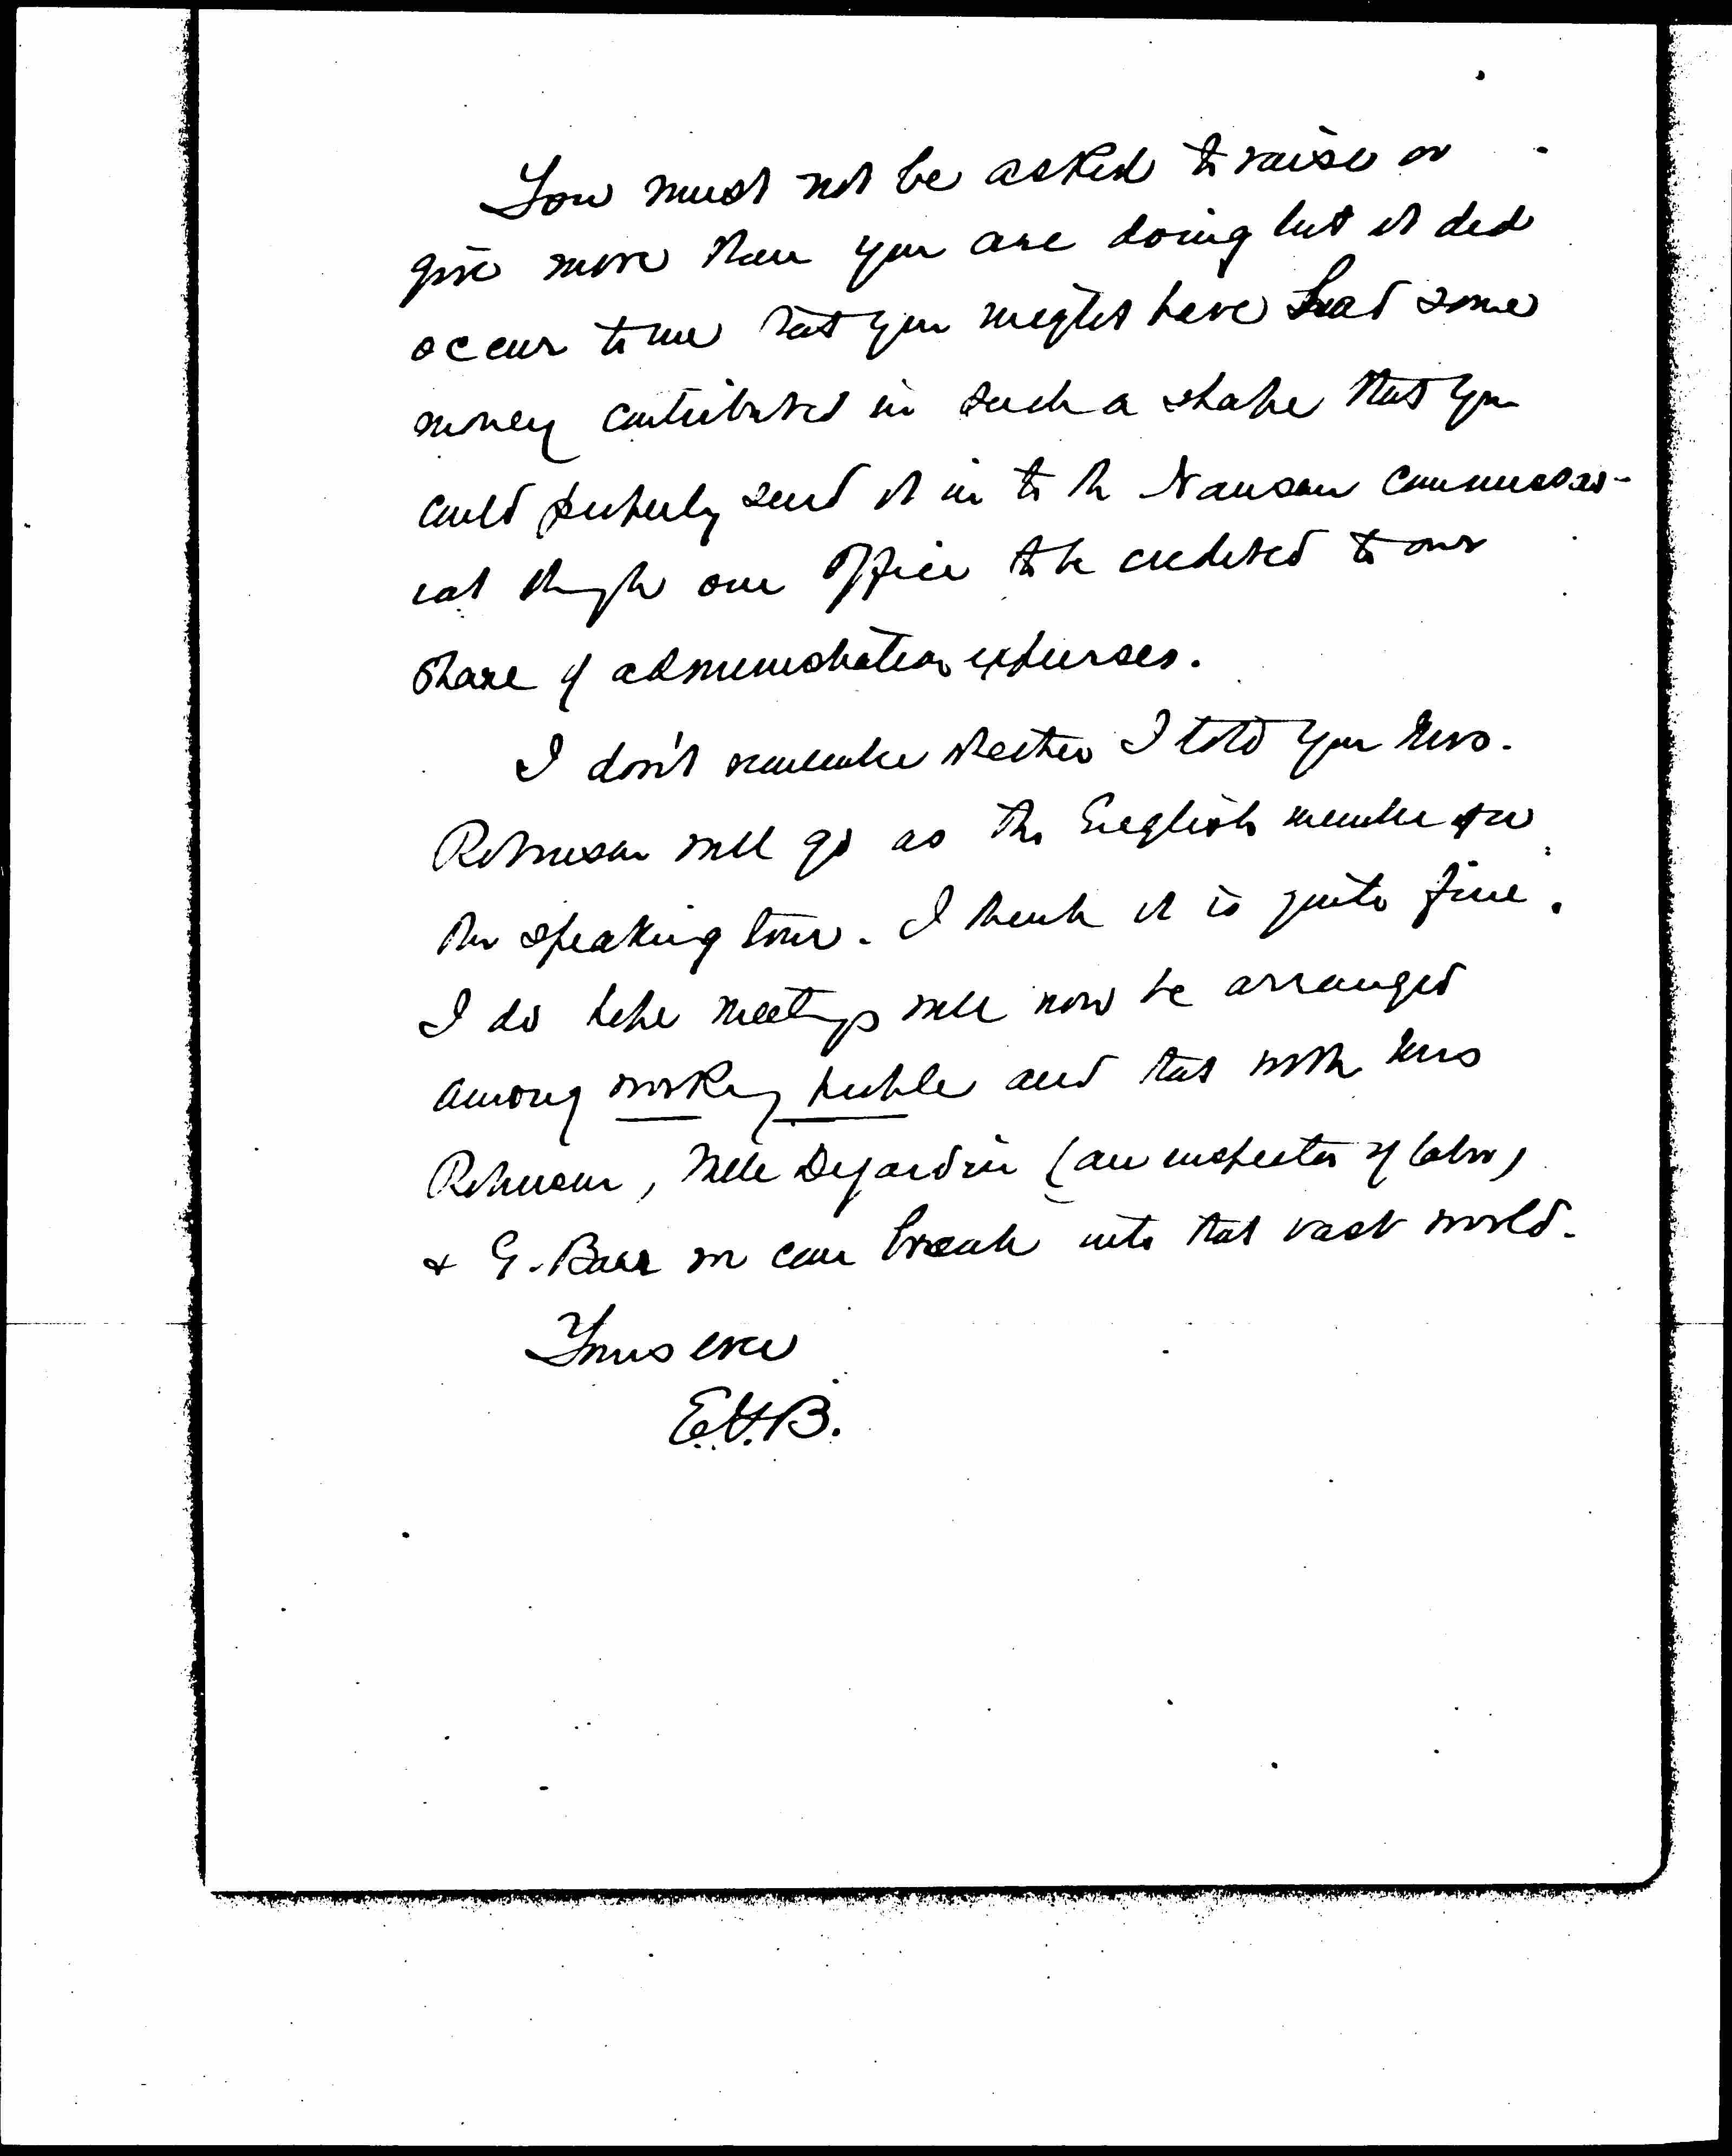 You must not be asked to raise or
give more than you are doing but it did
occur to me that you might have had some
money contributed in such a shape that you
could properly send it in to the Nansen Commissar-
iat through our office to be credited to our
share of administration expenses.
I don't remember whether I told you Mrs.
Robinson will go as the English member on
the speaking tour. I think it is quite fine.
I do hope meetings will now be arranged
among working people and that with Mrs
Robinson, Melle Dejardin (an inspector of labor)
& G. Baer we can break into that vast world.
Yours ever
E.G.B.